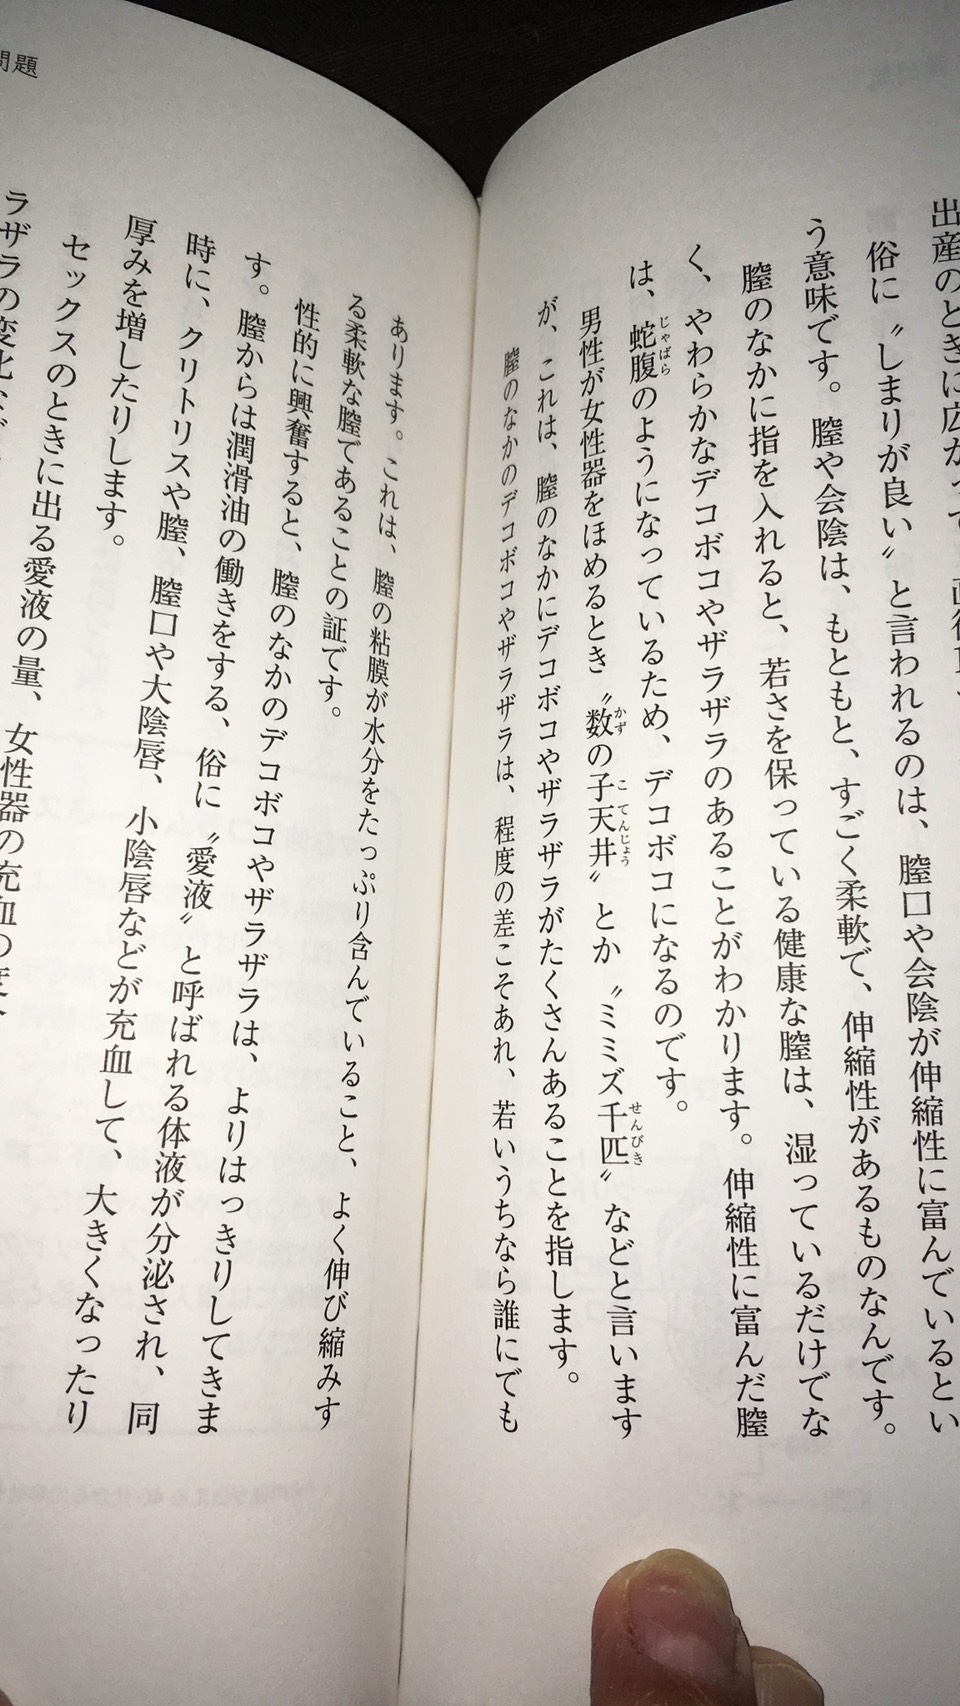 出産のときに広がって
俗に〝しまりが良い〟と言われるのは、膣口や会陰が伸縮性に富んでいるとい
う意味です。膣や会陰は、もともと、すごく柔軟で、伸縮性があるものなんです。
膣のなかに指を入れると、若さを保っている健康な膣は、湿っているだけでな
く、やわらかなデコボコやザラザラのあることがわかります。伸縮性に富んだ膣
は、蛇腹のようになっているため、デコボコになるのです。
じゃばら
男性が女性器をほめるとき〝数の子天井〟とか〝ミミズ千匹〟などと言います
かず こてんじょう せんびき
が、これは、膣のなかにデコボコやザラザラがたくさんあることを指します。
膣のなかのデコボコやザラザラは、程度の差こそあれ、若いうちなら誰にでも
問題
あります。これは、膣の粘膜が水分をたっぷり含んでいること、よく伸び縮みす
る柔軟な膣であることの証です。
性的に興奮すると、膣のなかのデコボコやザラザラは、よりはっきりしてきま
す。膣からは潤滑油の働きをする、俗に〝愛液〟と呼ばれる体液が分泌され、同
時に、クリトリスや膣、膣口や大陰唇、小陰唇などが充血して、大きくなったり
厚みを増したりします。
セックスのときに出る愛液の量、女性器の充血の度合
ラザラの変化など